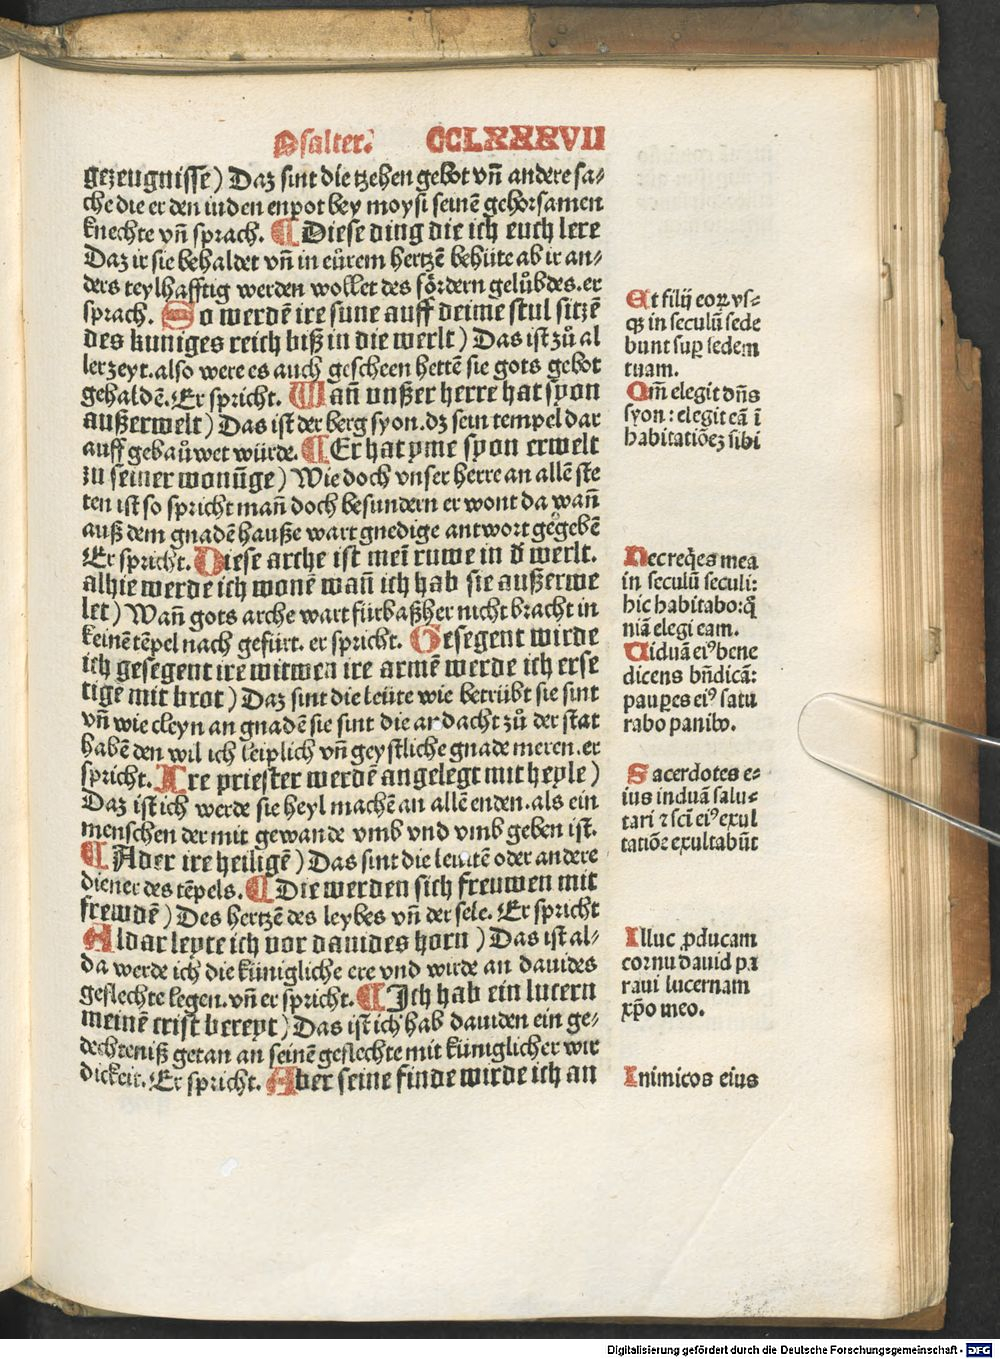 Psalter. CCLXXXVII
gezeugnisse) Daz sint die tzehen gebot vn̄ andere sa⸗
che die er den iuden enpot bey moysi seinē gehorsamen
knechte vn̄ sprach. ¶ Diese ding die ich euch lere
Daz ir sie behaldet vn̄ in eůrem hertzē behüte ab ir an⸗
ders teylhafftig werden wollet des fördern gelůbdes. er
sprach. So werdē ire sune auff deime stul sitzē
des kuniges reich biß in die werlt) Das ist zů al
ler zeyt. also were es auch gescheen hettē sie gots gebot
gehaldē. Er spricht. Wañ vnßer herre hat syon
außerwelt) Das ist der berg syon. dz sein tempel dar
auff gebaůwet würde. ¶ Er hat yme syon erwelt
zu seiner wonūge) Wie doch vnser herre an allē ste
ten ist so spricht mañ doch besundern er wont da wañ
auß dem gnadē hauße wart gnedige antwort gegebē
Er spricht. Diese arche ist meī ruwe in d̄ werlt.
alhie werde ich wonē wañ ich hab sie außerwe
let) Wañ gots arche wart fürbaßher nicht bracht in
keinē tēpel nach gefürt. er spricht. Gesegent wirde
ich gesegent ire witwen ire armē werde ich erse
tige mit brot) Daz sint die leüte wie betrübt sie sint
vn̄ wie cleyn an gnadē sie sint die ardacht zů der stat
habē den wil ich leiplich vn̄ geystliche gnade meren. er
spricht. Ire priester werdē angelegt mit heyle)
Daz ist ich werde sie heyl machē an allē enden. als ein
menschen der mit gewande vmb vnd vmb geben ist.
¶ Ader ire heiligē) Das sint die leuitē oder andere
diener des tēpels. ¶ Die werden sich freuwen mit
frewdē) Des hertzē des leybes vn̄ der sele. Er spricht
Aldar leyte ich vor dauides horn) Das ist al⸗
da werde ich die künigliche ere vnd wirde an dauides
geslechte legen. vn̄ er spricht. ¶ Ich hab ein lucern
meinē crist bereyt) Das ist ich hab dauiden ein ge⸗
dechteniß getan an seinē geslechte mit küniglicher wir
dickeit. Er spricht. Aber seine finde wirde ich an
Et filij eoꝝ vs⸗
qꝫ in seculū sede
bunt suꝑ sedem
tuam.
Qm̄ elegit dn̄s
syon: elegit eā ī
habitatiōeꝫ sibi
Hec req̄es mea
in seculū seculi:
hic habitabo: q̄
niā elegi eam.
Uiduā eiꝰ bene
dicens bn̄dicā:
pauꝑes eiꝰ satu
rabo panibꝰ.
Sacerdotes e⸗
ius induā salu⸗
tari ⁊ scī eiꝰ exul
tatiōe exultabūt
Illuc ꝓducam
cornu dauid pa
raui lucernam
xp̄o meo.
Inimicos eius
Digitalisierung gefördert durch die Deutsche Forschungsgemeinschaft - DFG